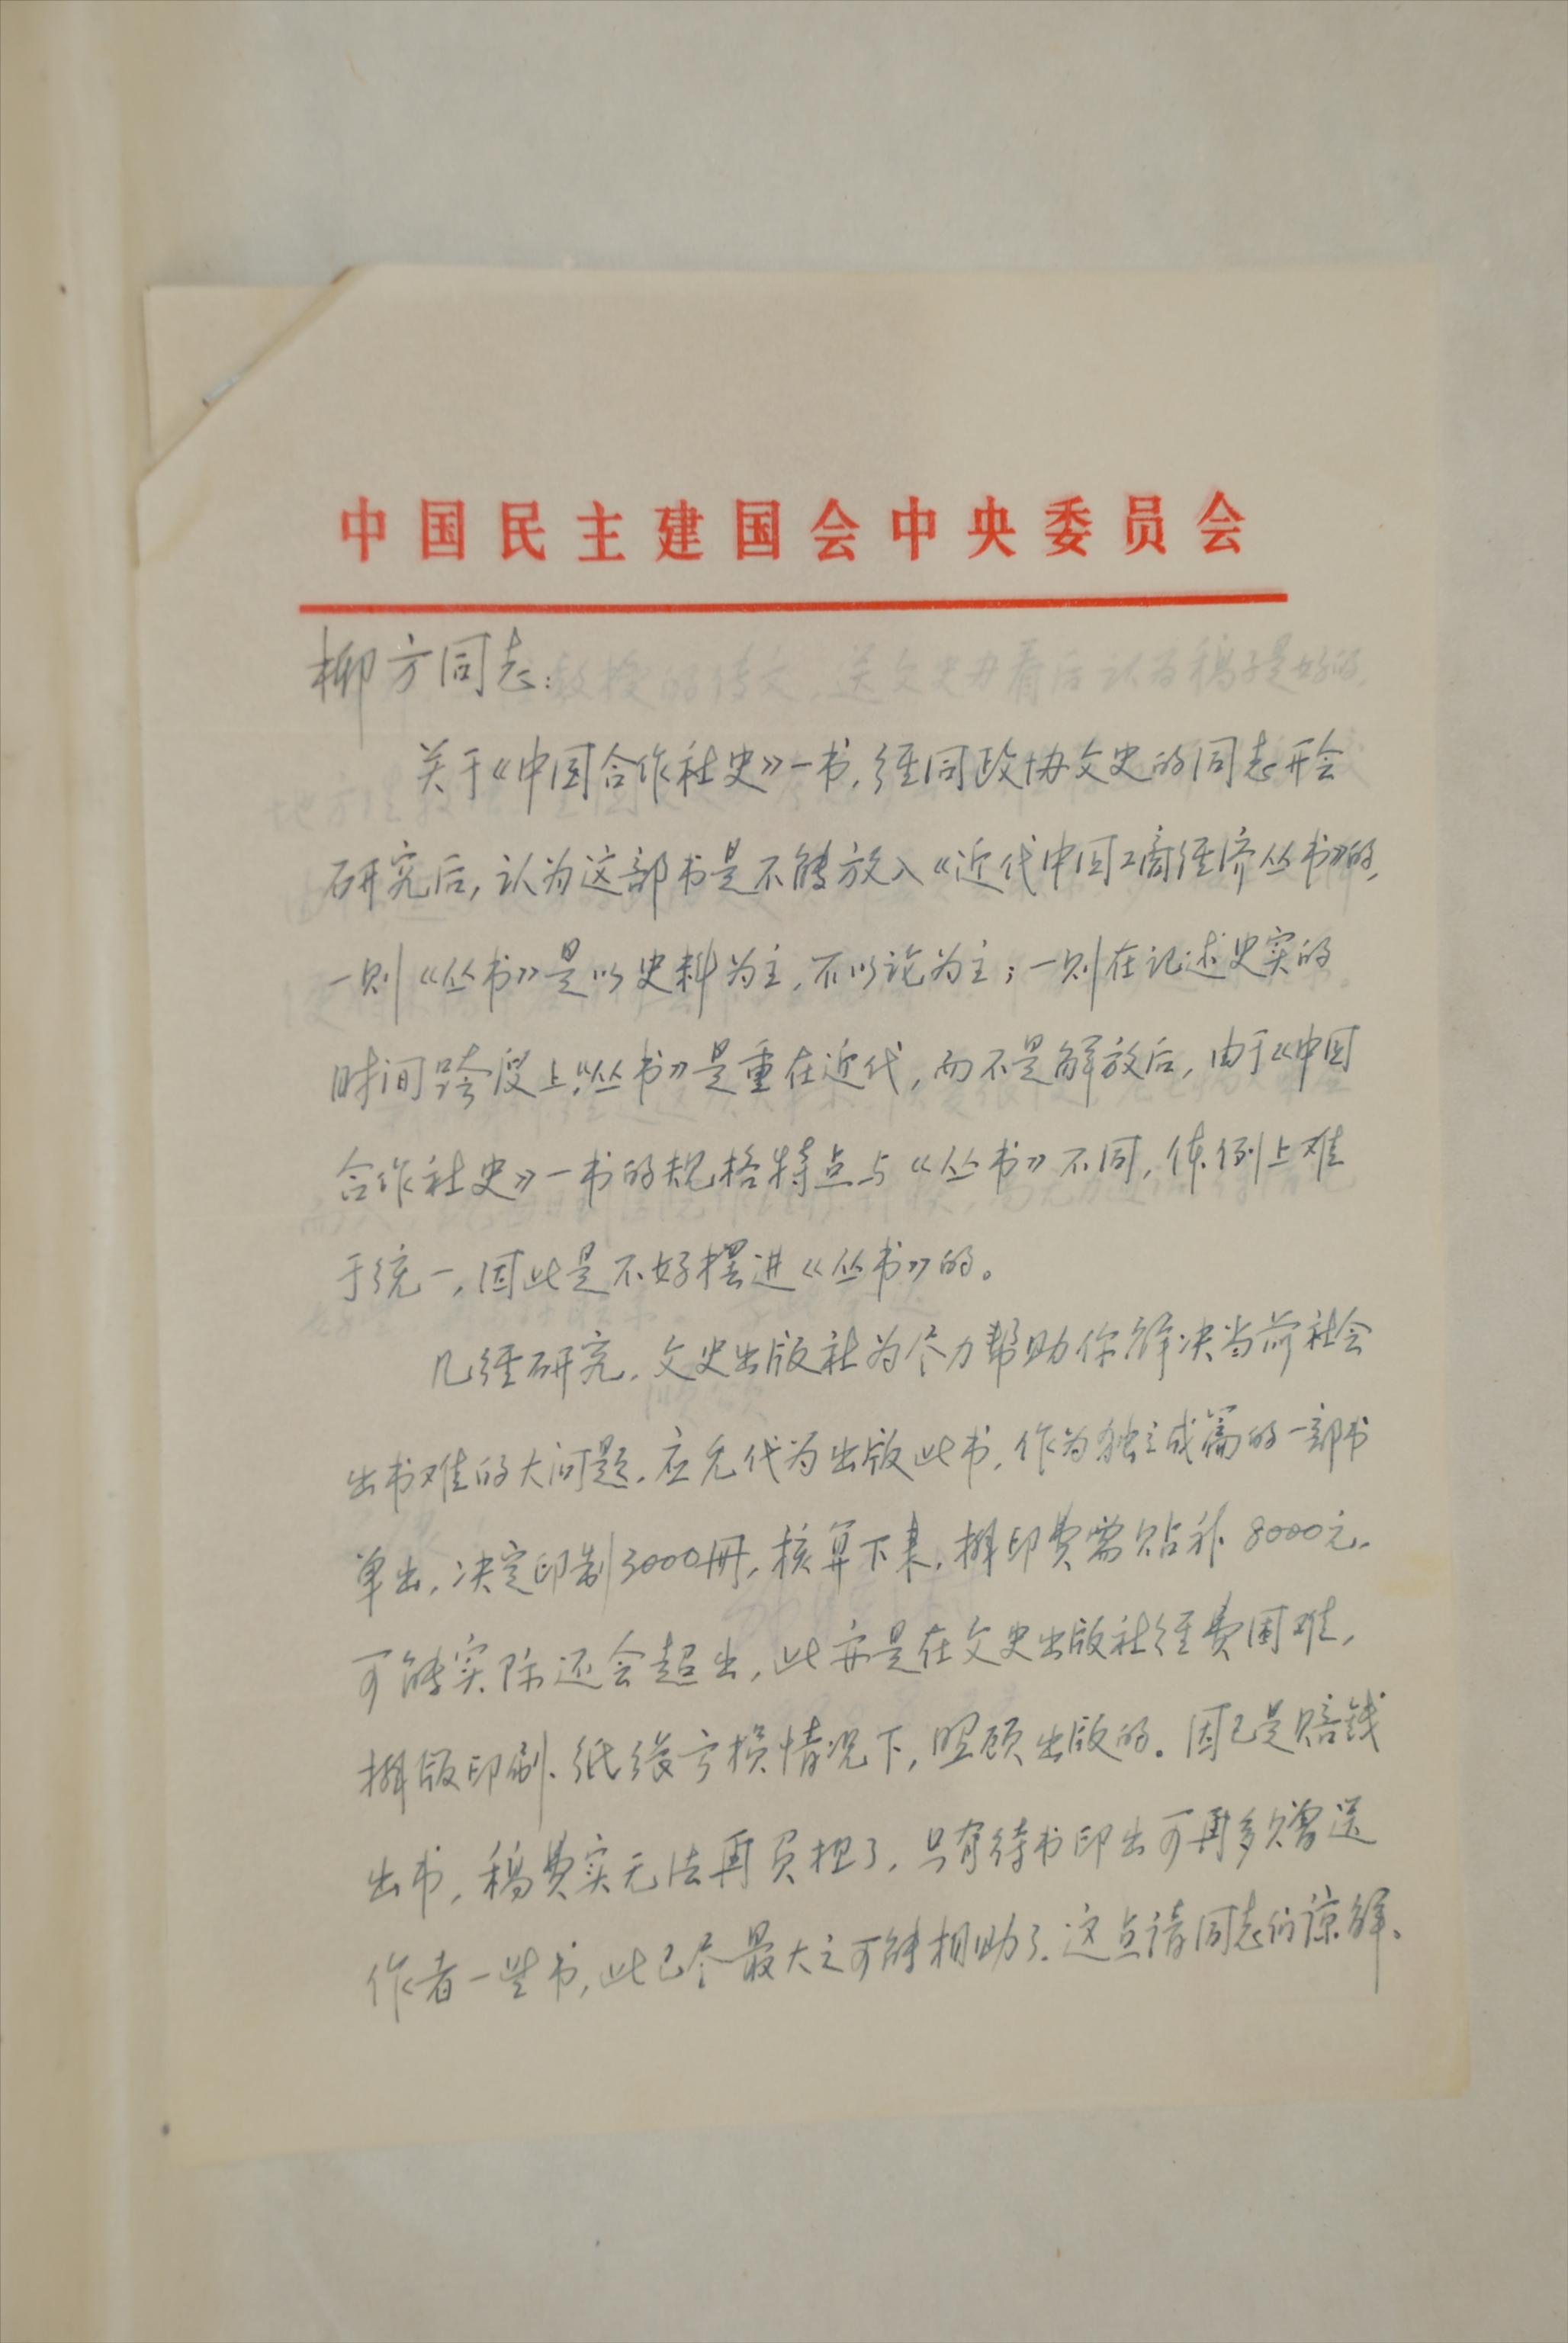 中国民主建国会中央委员会
柳方同志：
关于《中国合作社史》一书，经同政协文史的同志开会
研究后，认为这部书是不能放入《近代中国工商经济丛书》的，
一则《丛书》是以史料为主，不以论为主；一则在记述史实的
时间跨度上，《丛书》是重在近代，而不是解放后，由于《中国
合作社史》一书的规格特点与《丛书》不同，体例上难
于统一，因此是不好摆进《丛书》的。
几经研究，文史出版社为尽力帮助你解决当前社会
出书难的大问题，应允代为出版此书，作为独立成篇的一部书
单出，决定印制3000册，核算下来，排印费需贴补8000元，
可能实际还会超出，此亦是在文史出版社经费困难，
排版印刷、纸张亏损情况下，照顾出版的。因已是赔钱
出书，稿费实无法再负担了，只有待书印出可再多赠送
作者一些书，此已尽最大之可能相助了，这点请同志们谅解、